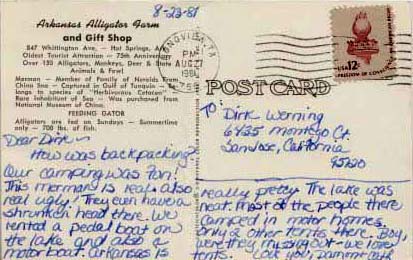 8-23-81
Arkansas Alligator Farm
and Gift Shop
847 Whittington Ave. — Hot Springs, Ark.
Oldest Tourist Attraction — 75th Anniversary
Over 150 Alligators, Monkeys, Deer & State
Animals & Fowl
Merman — Member of Family of Nereids From
China Sea — Captured in Gulf of Tunquin — Belongs to species of "Herbivorous Cetacea"
Rare Inhabitant of Sea — Was purchased from
National Museum of China.
FEEDING GATOR
Alligators are fed on Sundays — Summertime
only — 700 lbs. of fish.
Dear Dirk —
How was backpacking?
Our camping was fun!
This merman is real, also
real ugly! They even have a
shrunken head there. We
rented a pedal boat on
the lake and also a
motor boat. Arkansas is
TX
PM
AUG 27
USA 12c
POST CARD
To
Dirk Werning
6435 Montego Ct.
San Jose, California
95120
really pretty. The lake was
neat. Most of the people there
camped in motor homes.
Only 2 other tents there. Boy,
were they missing out — we love
tents. Love you,